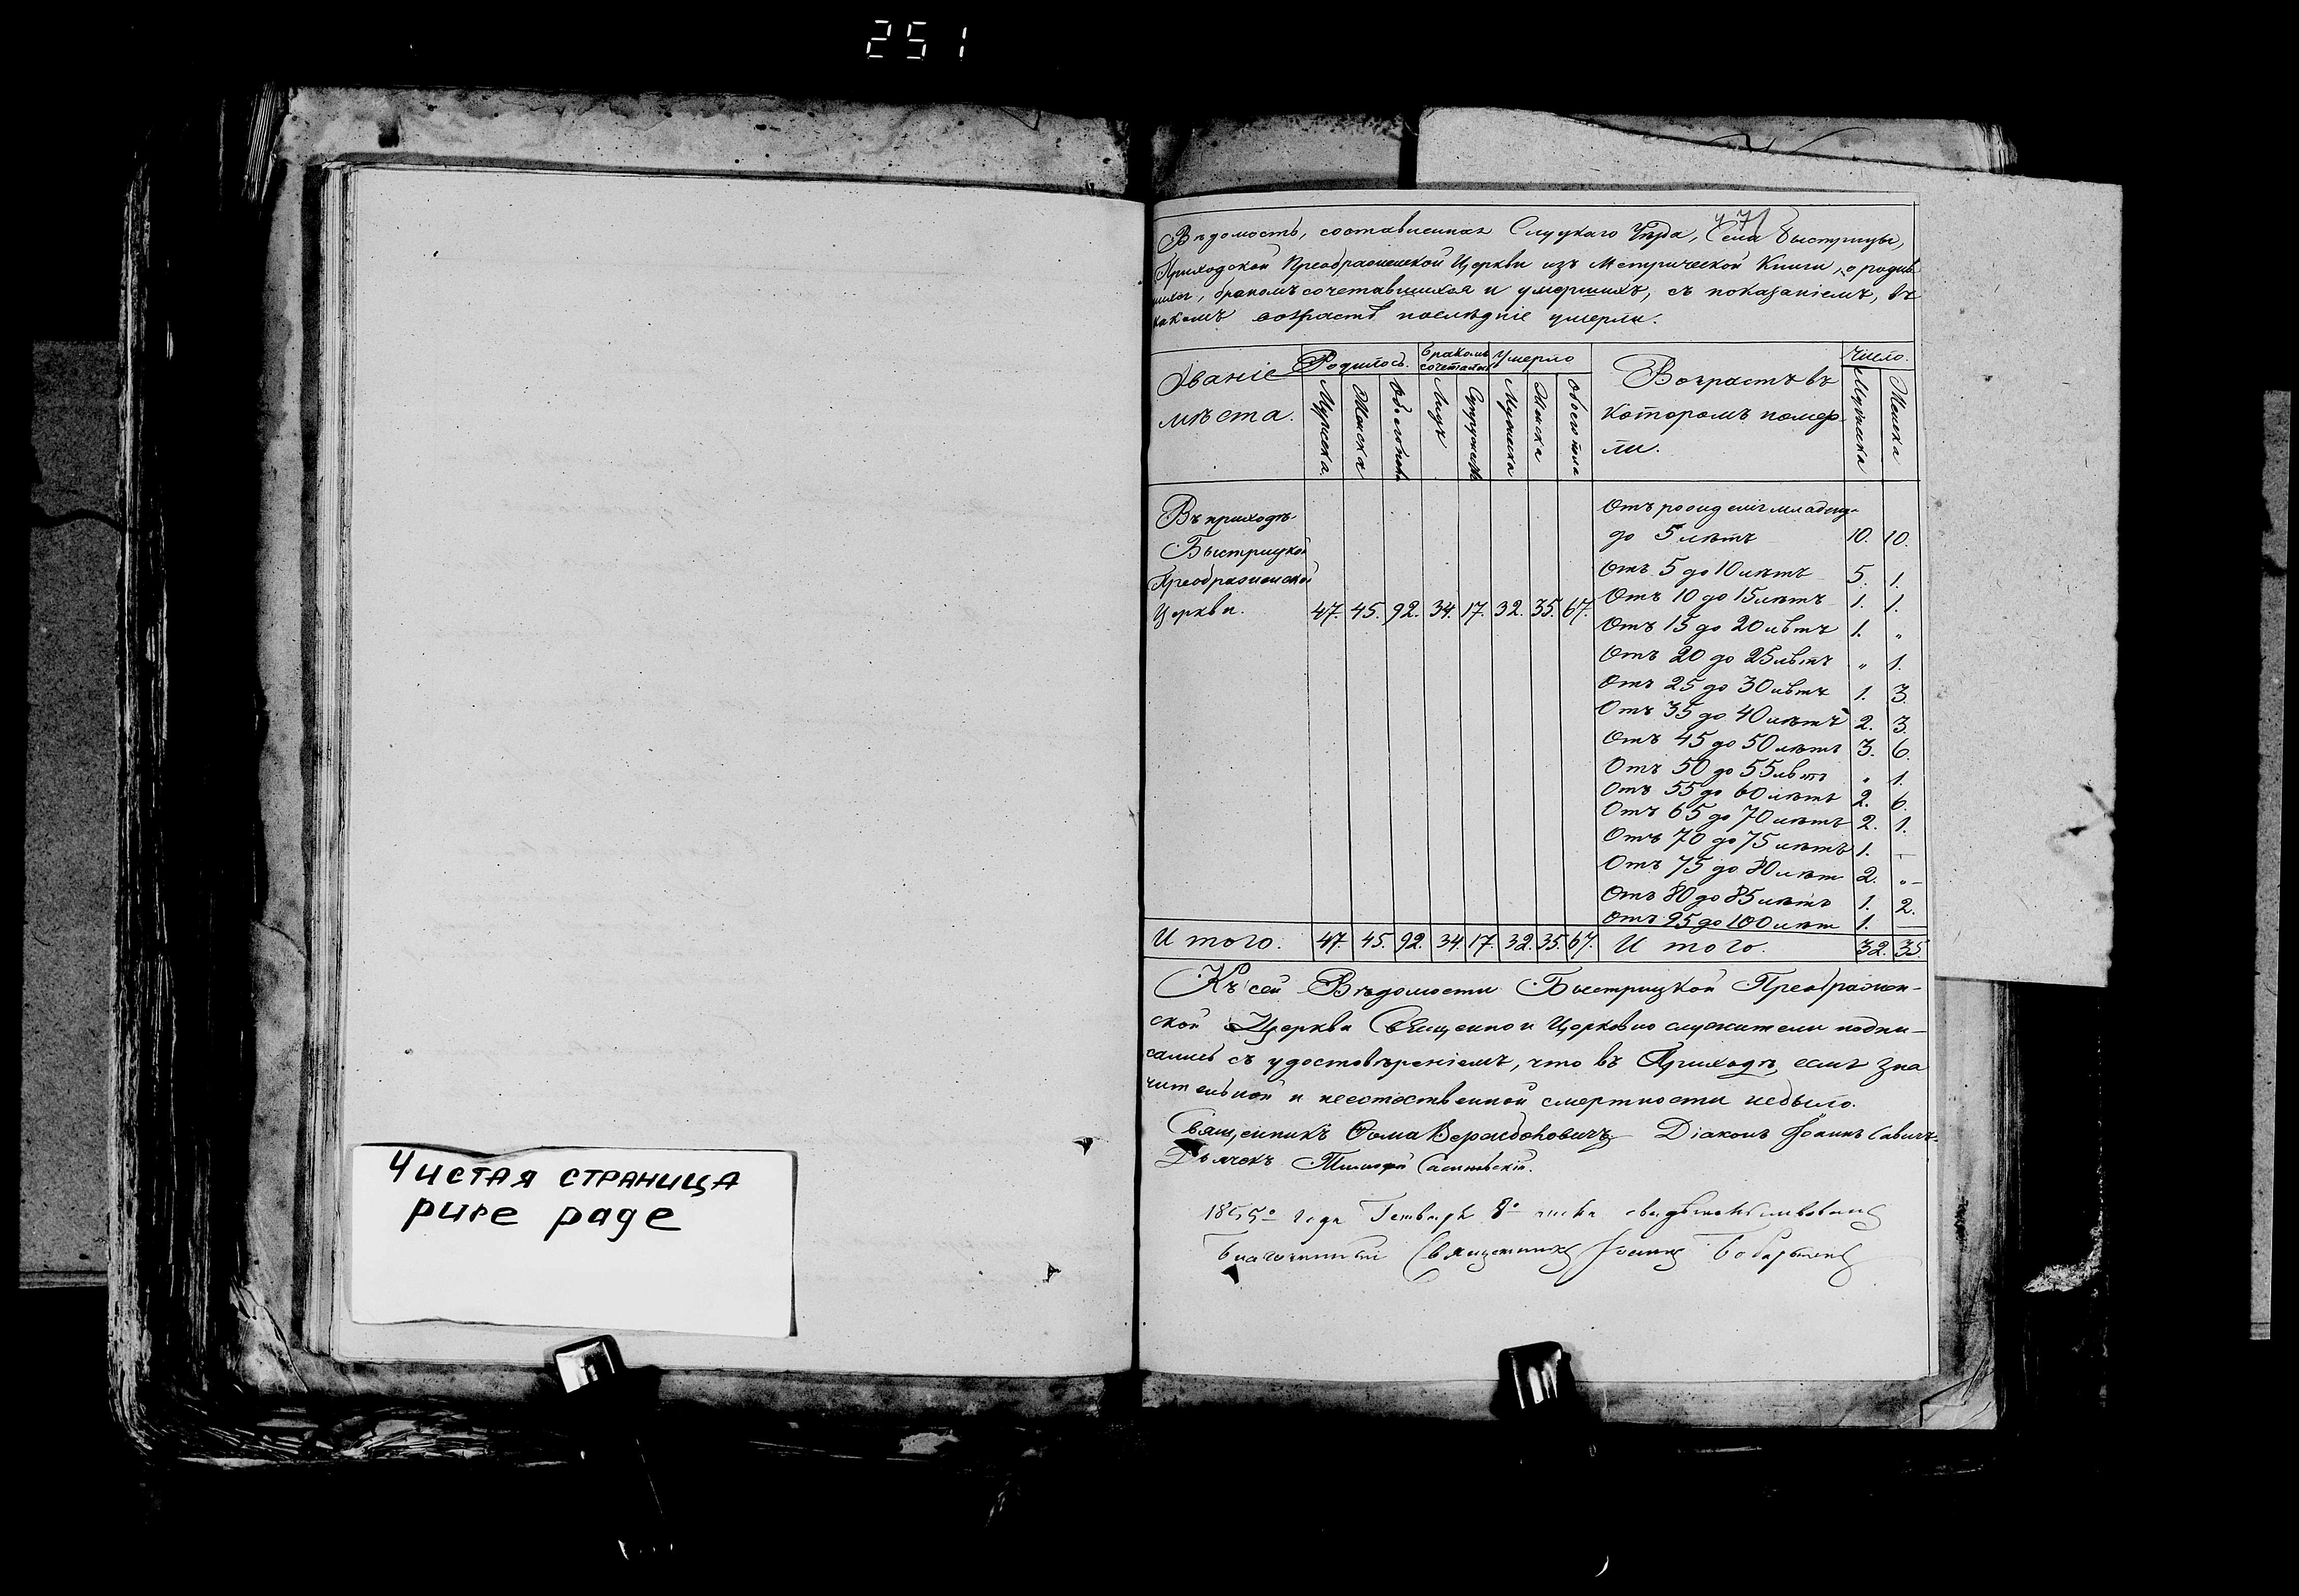 251
Чистая страница
pure page
47
Вѣдомость, составленная Слуцкаго Уѣзда, Села Быстрицы,
Приходской Преображенской Церкви изъ Метрической Книги, о родив
шихся, бракомъ сочетавшихся и умершихъ, съ показаніемъ, въ
какомъ возрастѣ послѣдніе умерли.
Званіе мѣста. Родилось. Бракомъ сочеталось Умерло Возрастъ въ которомъ помер- ли. Число.
Мужеска. Женска Обоего пола Лицъ Супружествъ Мужеска Женска Обоего пола Мужеска Женска
Въ приходѣ
Быстрицкой
Преображенской
Церкви. 47. 45. 92. 34. 17. 32. 35. 67.
Отъ рожденія младенц.
до 5 лѣтъ 10. 10.
Отъ 5 до 10 лѣтъ 5. 1.
Отъ 10 до 15 лѣтъ 1. 1.
Отъ 15 до 20 лѣтъ 1. "
Отъ 20 до 25 лѣтъ " 1.
Отъ 25 до 30 лѣтъ 1. 3.
Отъ 35 до 40 лѣтъ 2. 3.
Отъ 45 до 50 лѣтъ 3. 6.
Отъ 50 до 55 лѣтъ " 1.
Отъ 55 до 60 лѣтъ 2. 6.
Отъ 65 до 70 лѣтъ 2. 1.
Отъ 70 до 75 лѣтъ 1. —
Отъ 75 до 80 лѣт 2. "—
Отъ 80 до 85 лѣтъ 1. 2.
Отъ 95 до 100 лѣт 1. —
Итого. 47. 45. 92. 34. 17. 32. 35. 67. Итого. 32. 35.
Къ сей Вѣдомости Быстрицкой Преображен-
ской Церкви Священно и Церковно служители подпи-
сались съ удостовѣреніемъ, что въ Приходѣ семъ зна
чительной и неестественной смертности небыло.
Священникъ Ѳома Діаконъ Іоаннъ Савичъ.
Дьячекъ
1855го года Генваря 8го числа свидѣтельствовалъ
Благочинный Священникъ Іоаннъ